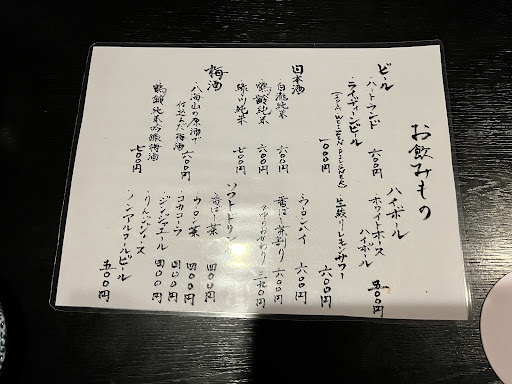 お飲みもの
ビール
・ハートランド 六〇〇円
・ライディーンビール
(IPA WEIZEN PILSNER)
一〇〇〇円
日本酒
・白瀧純米 六〇〇円
・鶴齢純米 六〇〇円
・緑川純米 七〇〇円
梅酒
・八海山の原酒で
仕込んだ梅酒 六〇〇円
・鶴齢純米吟醸梅酒
七〇〇円
ハイボール
・ホワイトホース
ハイボール
五〇〇円
・生絞りレモンサワー
六〇〇円
・ウーロンハイ 六〇〇円
・番ほし茶割り 六〇〇円
ソフトドリンク
・番ほし茶 四〇〇円
・ウーロン茶 四〇〇円
・コカコーラ 四〇〇円
・ジンジャエール 四〇〇円
・りんごジュース
・ノンアルコールビール
五〇〇円